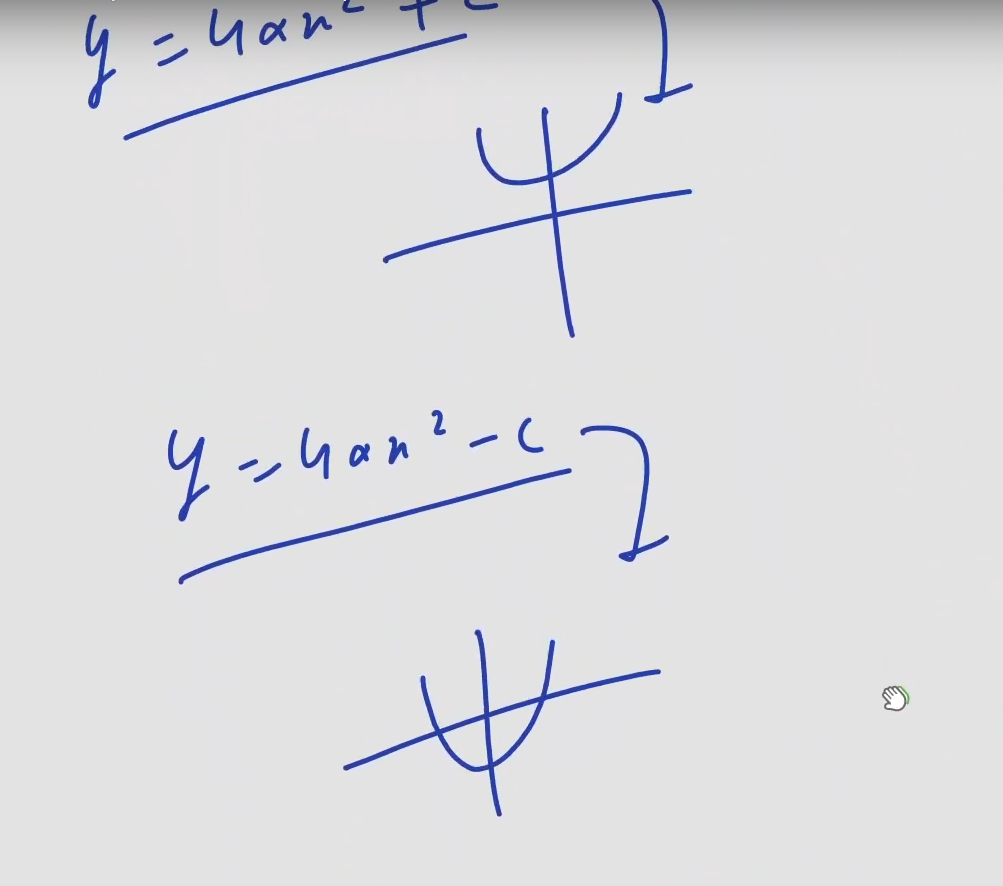 y = 4ax² + c
y = 4ax² - c